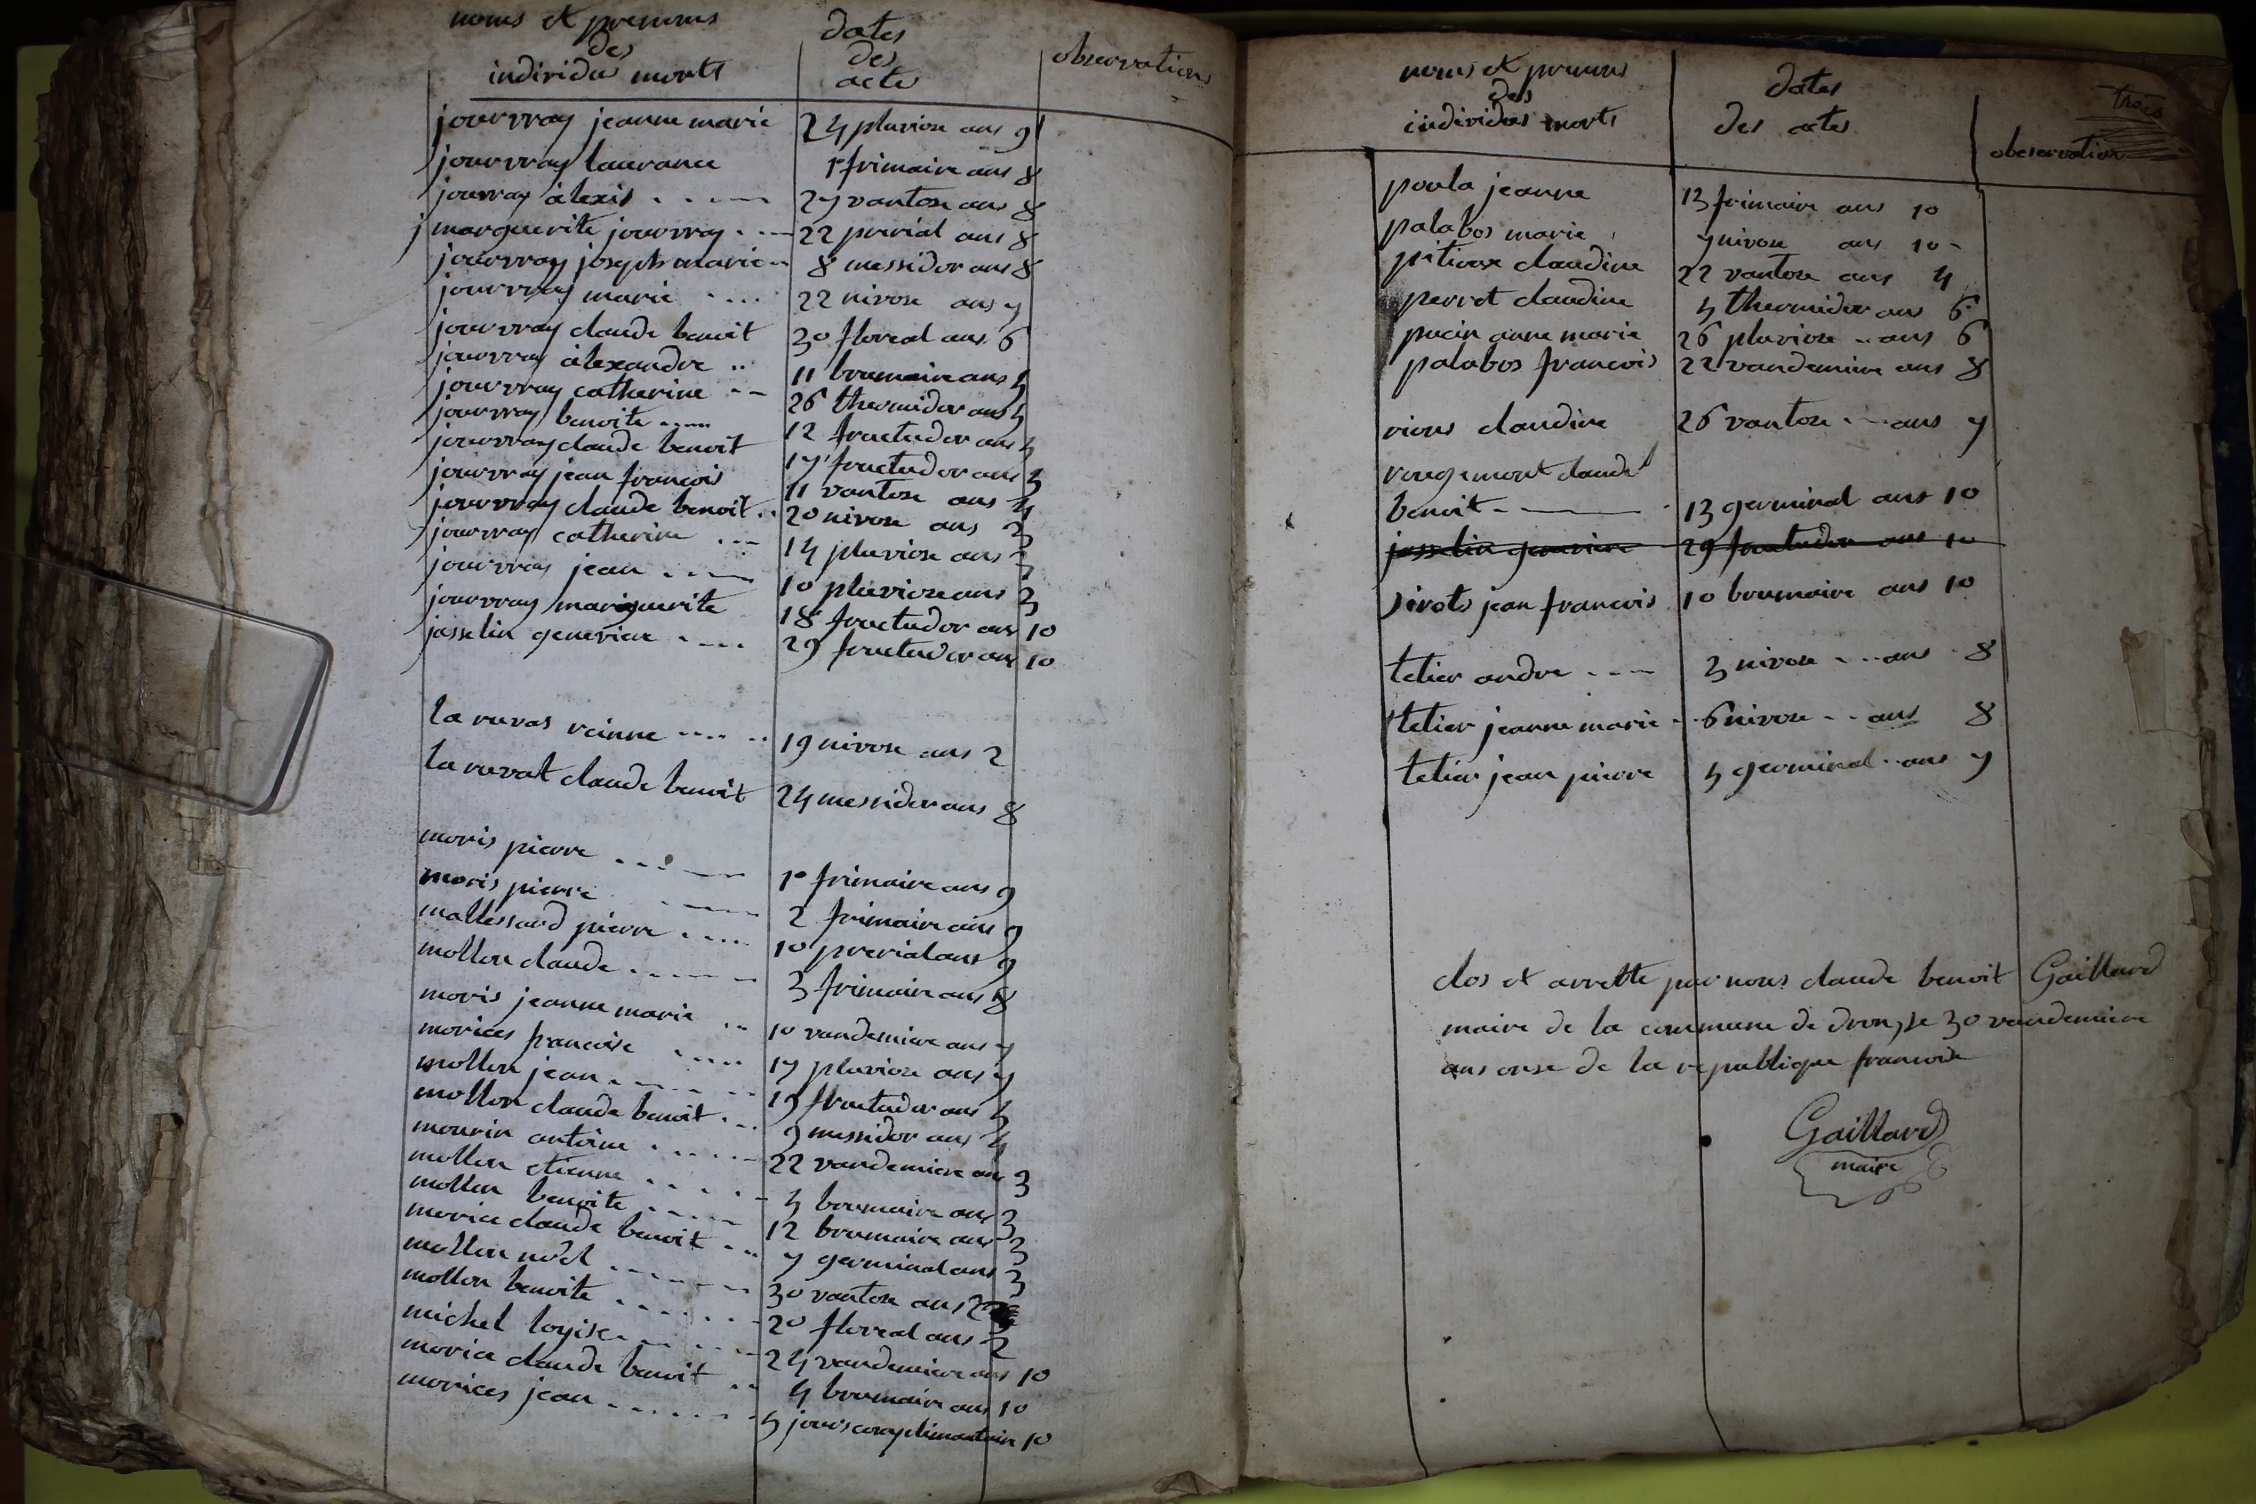 noms et prenoms
des
individus morts
dates
des
acte
observations
jouvray jeanne marie 24 pluviose ans 9
jouvray laurance 1r frimaire ans 8
jouvray álexis 27 vantose ans 8
j marguerite jouvray 22 prerial ans 8
jouvray joseph marie 8 messidor ans 8
jouvray marie 22 nivose ans 7
jouvray claude benoit 30 floreal ans 6
jouvray álexandre 11 brumaire ans 5
jouvray catherine 26 thermidor ans 5
jouvray benoite 12 fructudor ans
jouvray claude benoit 17 fructudor ans 3
jouvray jean francois 11 vantose ans 4
jouvray claude benoit 20 nivose ans 3
jouvray catherine 14 pluviose ans
jouvray jean 10 pluviose ans 3
jouvray mariguerite 18 fructudor ans 10
josselin genevieve 29 fructudor ans 10
la ruvas reinne 19 nivose ans 2
la ruvat claude benoit 24 messidor ans 8
moris pierre 1r frimaire ans 9
moris pierre 2 frimaire ans 9
mallessard pierre 10 prerial ans 9
mollon claude 3 frimaire ans 8
moris jeanne marie 10 vandemiere ans 7
morices francoise 17 pluviose ans 7
mollon jean 19 fructudor ans 4
mollon claude benoit 9 messidor ans 4
mourin antoine 22 vandemiere ans 3
mollon etienne 4 brumaire ans 3
mollon benoite 12 brumaire ans 3
morice claude benoit 7 germinal ans 3
mollon noël 30 vantose ans 2
mollon benoite 20 floreal ans 2
michel loyise 24 vandemiere ans 10
morice claude benoit 4 brumaire ans 10
morices jean 4 jours complimantaire 10
noms et prenoms
des
individus morts
dates
des actes
trois
observation
poula jeanne 13 frimaire ans 10
palabos marie 7 nivose ans 10
pitieux claudine 22 vantose ans 4
perret claudine 4 thermidor ans 6
pucin anne marie 26 pluviose ans 6
palabos francois 22 vandemiere ans 8
rious claudine 26 vantose ans 7
rougemont claude
benoit 13 germinal ans 10
josselin genevieve 29 fructudor ans 10
sirots jean francois 10 brumaire ans 10
telier andre 3 nivose ans 8
telier jeanne marie 6 nivose ans 8
telier jean pierre 4 germinal ans 7
clos et arrette par nous claude benoit Gaillard
maire de la commune de dron, le 30 vandemiere
ans onse de la republique francoise
Gaillard
maire